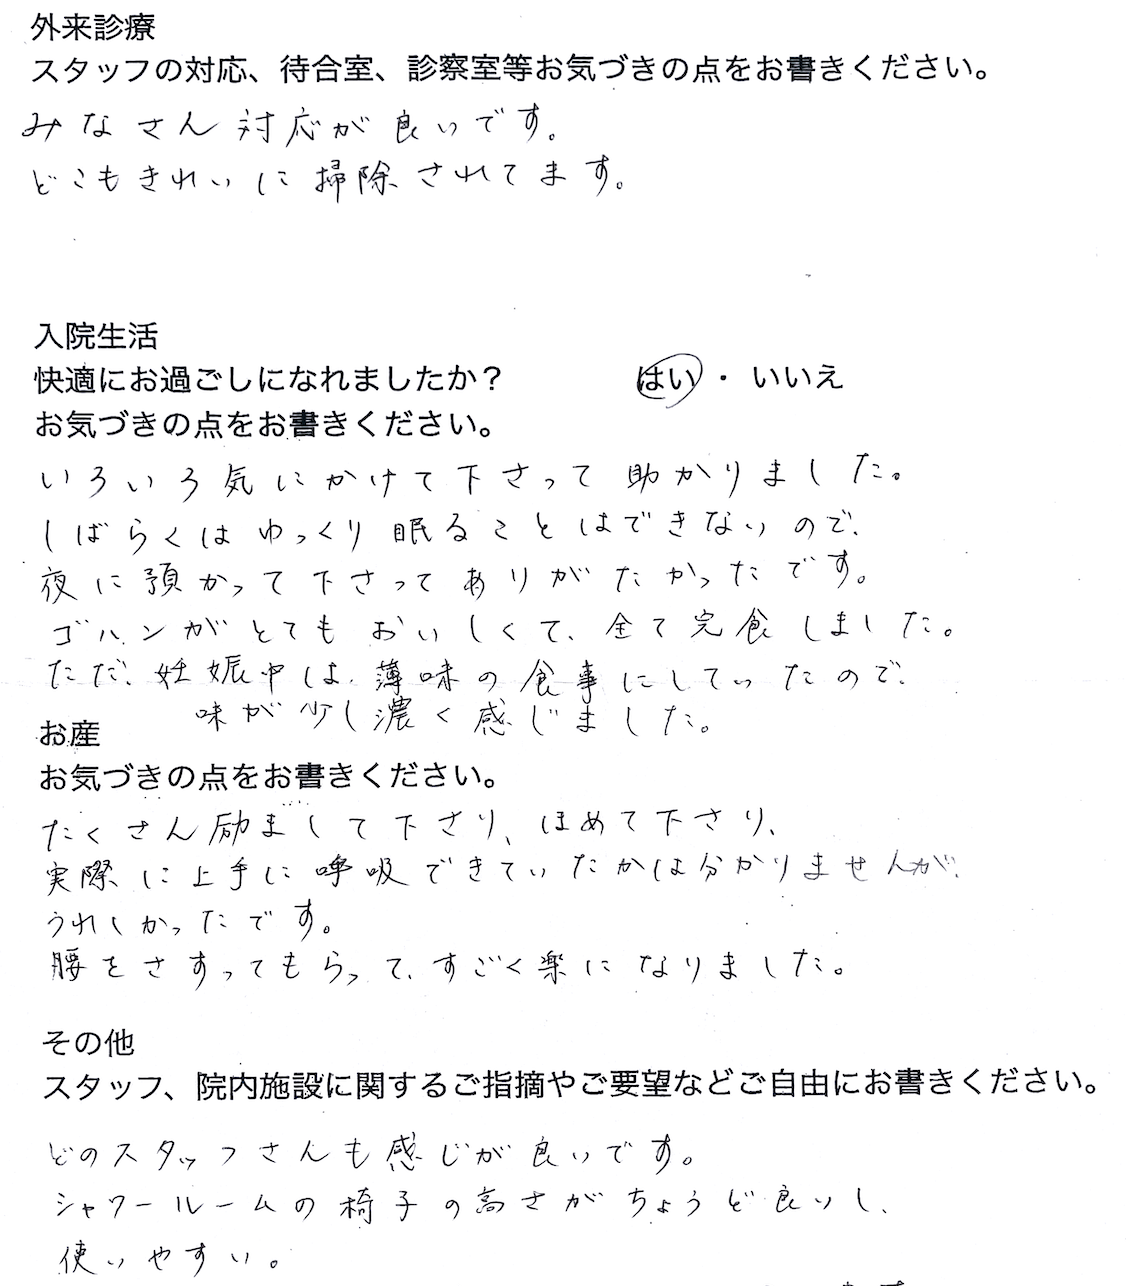 外来診療
スタッフの対応、待合室、診察室等お気づきの点をお書きください。
みなさん対応が良いです。
どこもきれいに掃除されてます。
入院生活
快適にお過ごしになれましたか？ はい・いいえ
お気づきの点をお書きください。
いろいろ気にかけて下さって助かりました。
しばらくはゆっくり眠ることはできないので、
夜に預かって下さってありがたかったです。
ゴハンがとてもおいしくて、全て完食しました。
ただ、妊娠中は、薄味の食事にしていたので、
味が少し濃く感じました。
お産
お気づきの点をお書きください。
たくさん励まして下さり、ほめて下さり、
実際に上手に呼吸できていたかは分かりませんが、
うれしかったです。
腰をさすってもらって、すごく楽になりました。
その他
スタッフ、院内施設に関するご指摘やご要望などご自由にお書きください。
どのスタッフさんも感じが良いです。
シャワールームの椅子の高さがちょうど良いし、
使いやすい。